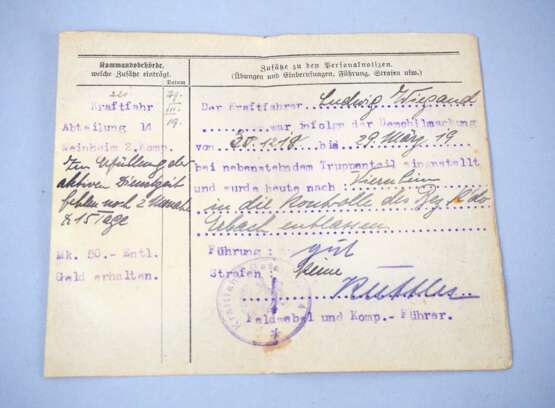 Kommandobehörde,
welche Zusätze einträgt.
Datum
Zusätze zu den Personalnotizen.
(Übungen und Einberufungen, Führung, Strafen usw.)
Kraftfahr
Abteilung 14
Weinheim 2.Komp.
Zur Erfüllung der
aktiven Dienstzeit
fehlen noch 2 Monate
& 15 Tage
Mk. 50.- Entl.
Geld erhalten.
29.
III.
19.
Der Kraftfahrer Ludwig Wiegand
war infolge der Demobilmachung
von 20.12.18 bis 29. März 19
bei nebenstehendem Truppenteil eingestellt
und wurde heute nach:
in die Kontrolle des Bez. Kdo
Erbach entlassen.
Führung: gut
Strafen: keine
Feldwebel und Komp.- Führer.